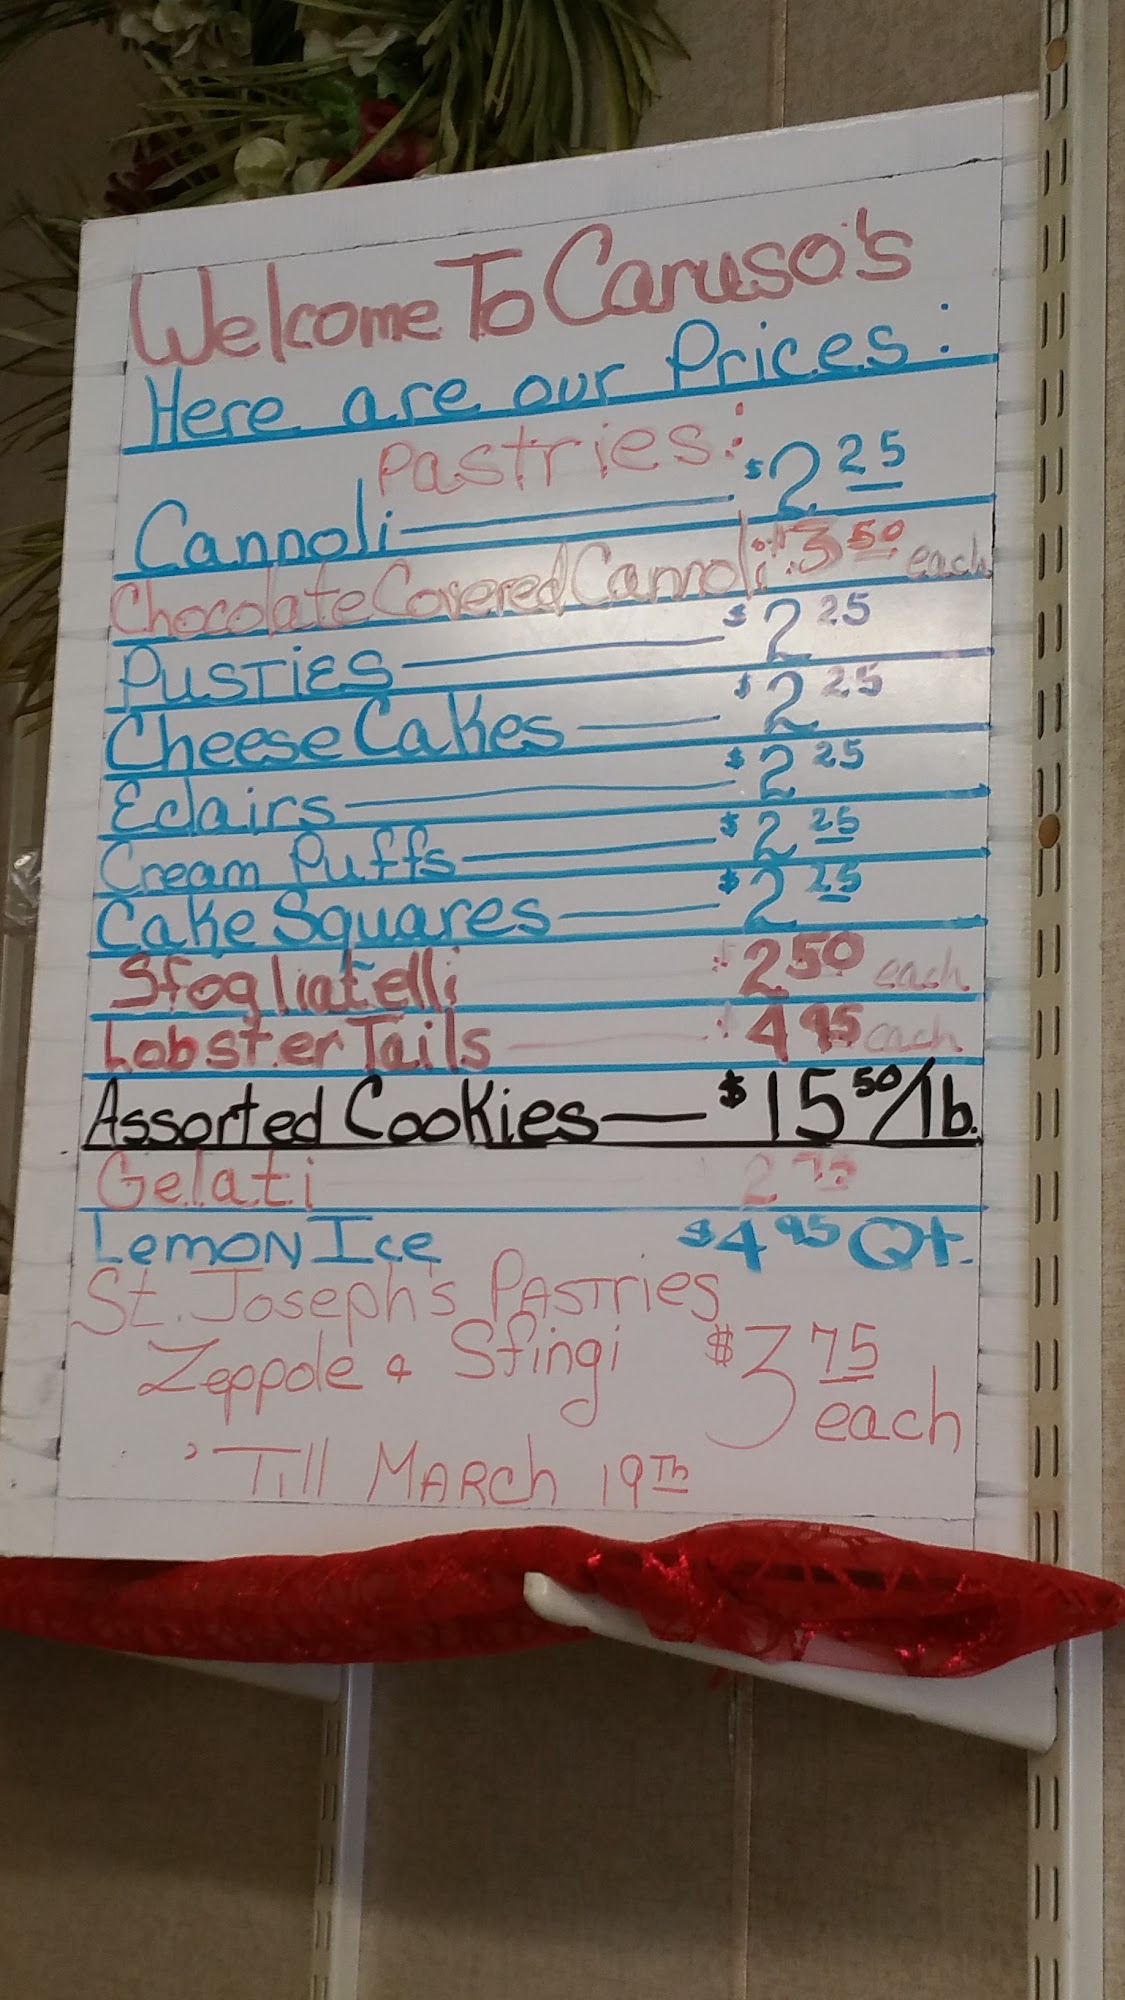 Welcome To Caruso's
Here are our Prices:
Pastries:
Cannoli $2.25
Chocolate Covered Cannoli $3.50 each
Pusties $2.25
Cheese Cakes $2.25
Eclairs $2.25
Cream Puffs $2.25
Cake Squares $2.25
Sfogliatelli $2.50 each
Lobster Tails $4.95 each
Assorted Cookies $15.50/lb.
Gelati
Lemon Ice $4.95 Qt.
St. Joseph's Pastries
Zeppole & Sfingi $3.75
each
'Till March 19th